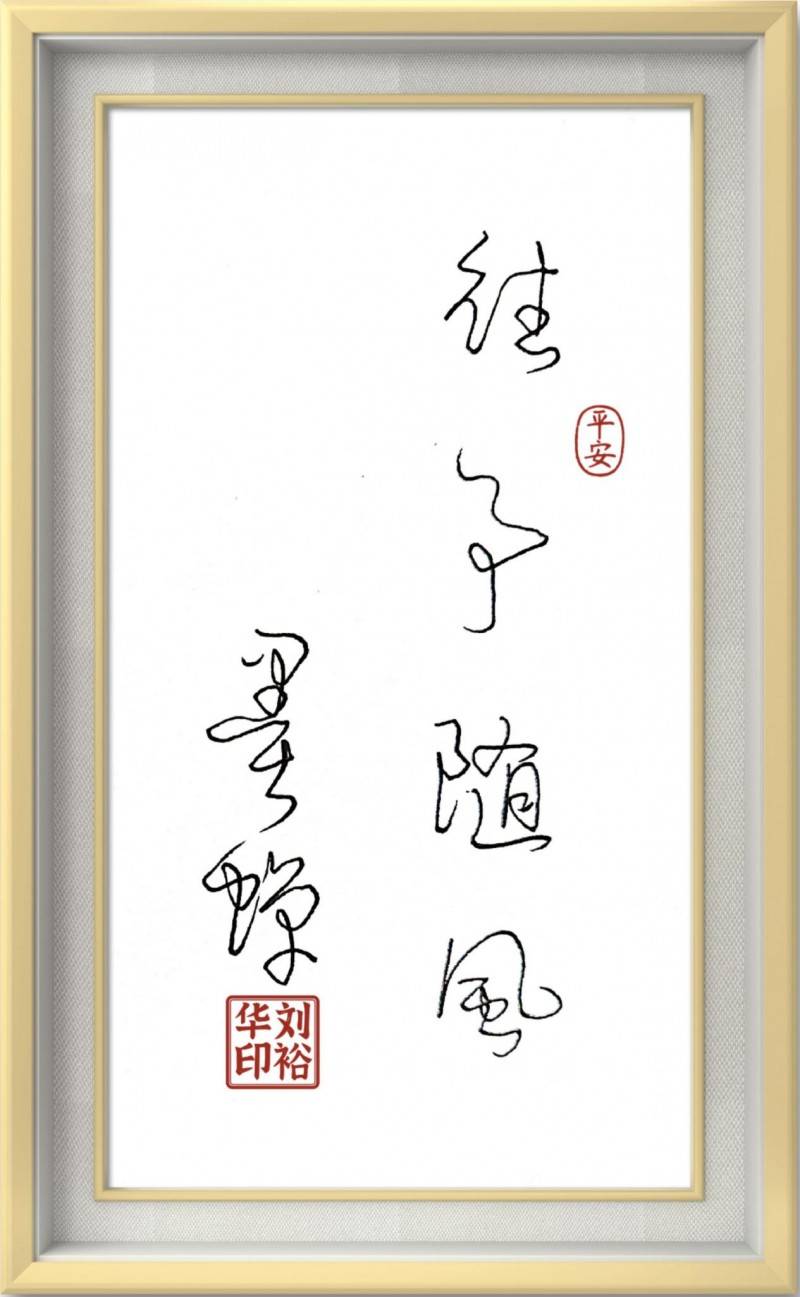 往事随風
平安
墨蝉
刘裕华印